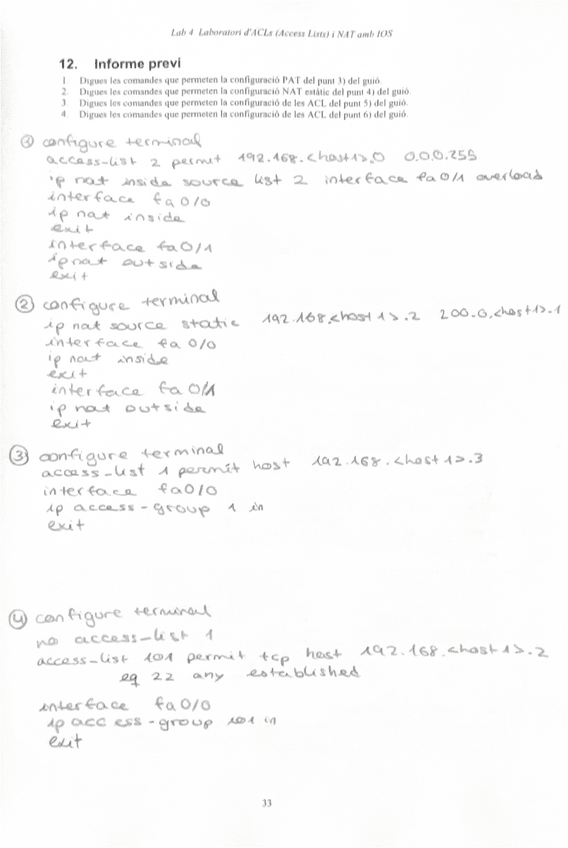 Lab 4 Laboratori d'ACLs (Access Lists) i NAT amb IOS
12. Informe previ
1 Digues les comandes que permeten la configuració PAT del punt 3) del guió.
2. Digues les comandes que permeten la configuració NAT estàtic del punt 4) del guió.
3 Digues les comandes que permeten la configuració de les ACL del punt 5) del guió.
4. Digues les comandes que permeten la configuració de les ACL del punt 6) del guió.
① configure terminal
access-list 2 permit 192.168.<host1>.0 0.0.0.255
ip nat inside source list 2 interface fa0/1 overload
interface fa0/0
ip nat inside
exit
interface fa0/1
ip nat outside
exit
② configure terminal
ip nat source static 192.168.<host1>.2 200.0.<host1>.1
interface fa0/0
ip nat inside
exit
interface fa0/1
ip nat outside
exit
③ configure terminal
access-list 1 permit host 192.168.<host1>.3
interface fa0/0
ip access-group 1 in
exit
④ configure terminal
no access-list 1
access-list 101 permit tcp host 192.168.<host1>.2
eq 22 any established
interface fa0/0
ip access-group 101 in
exit
33